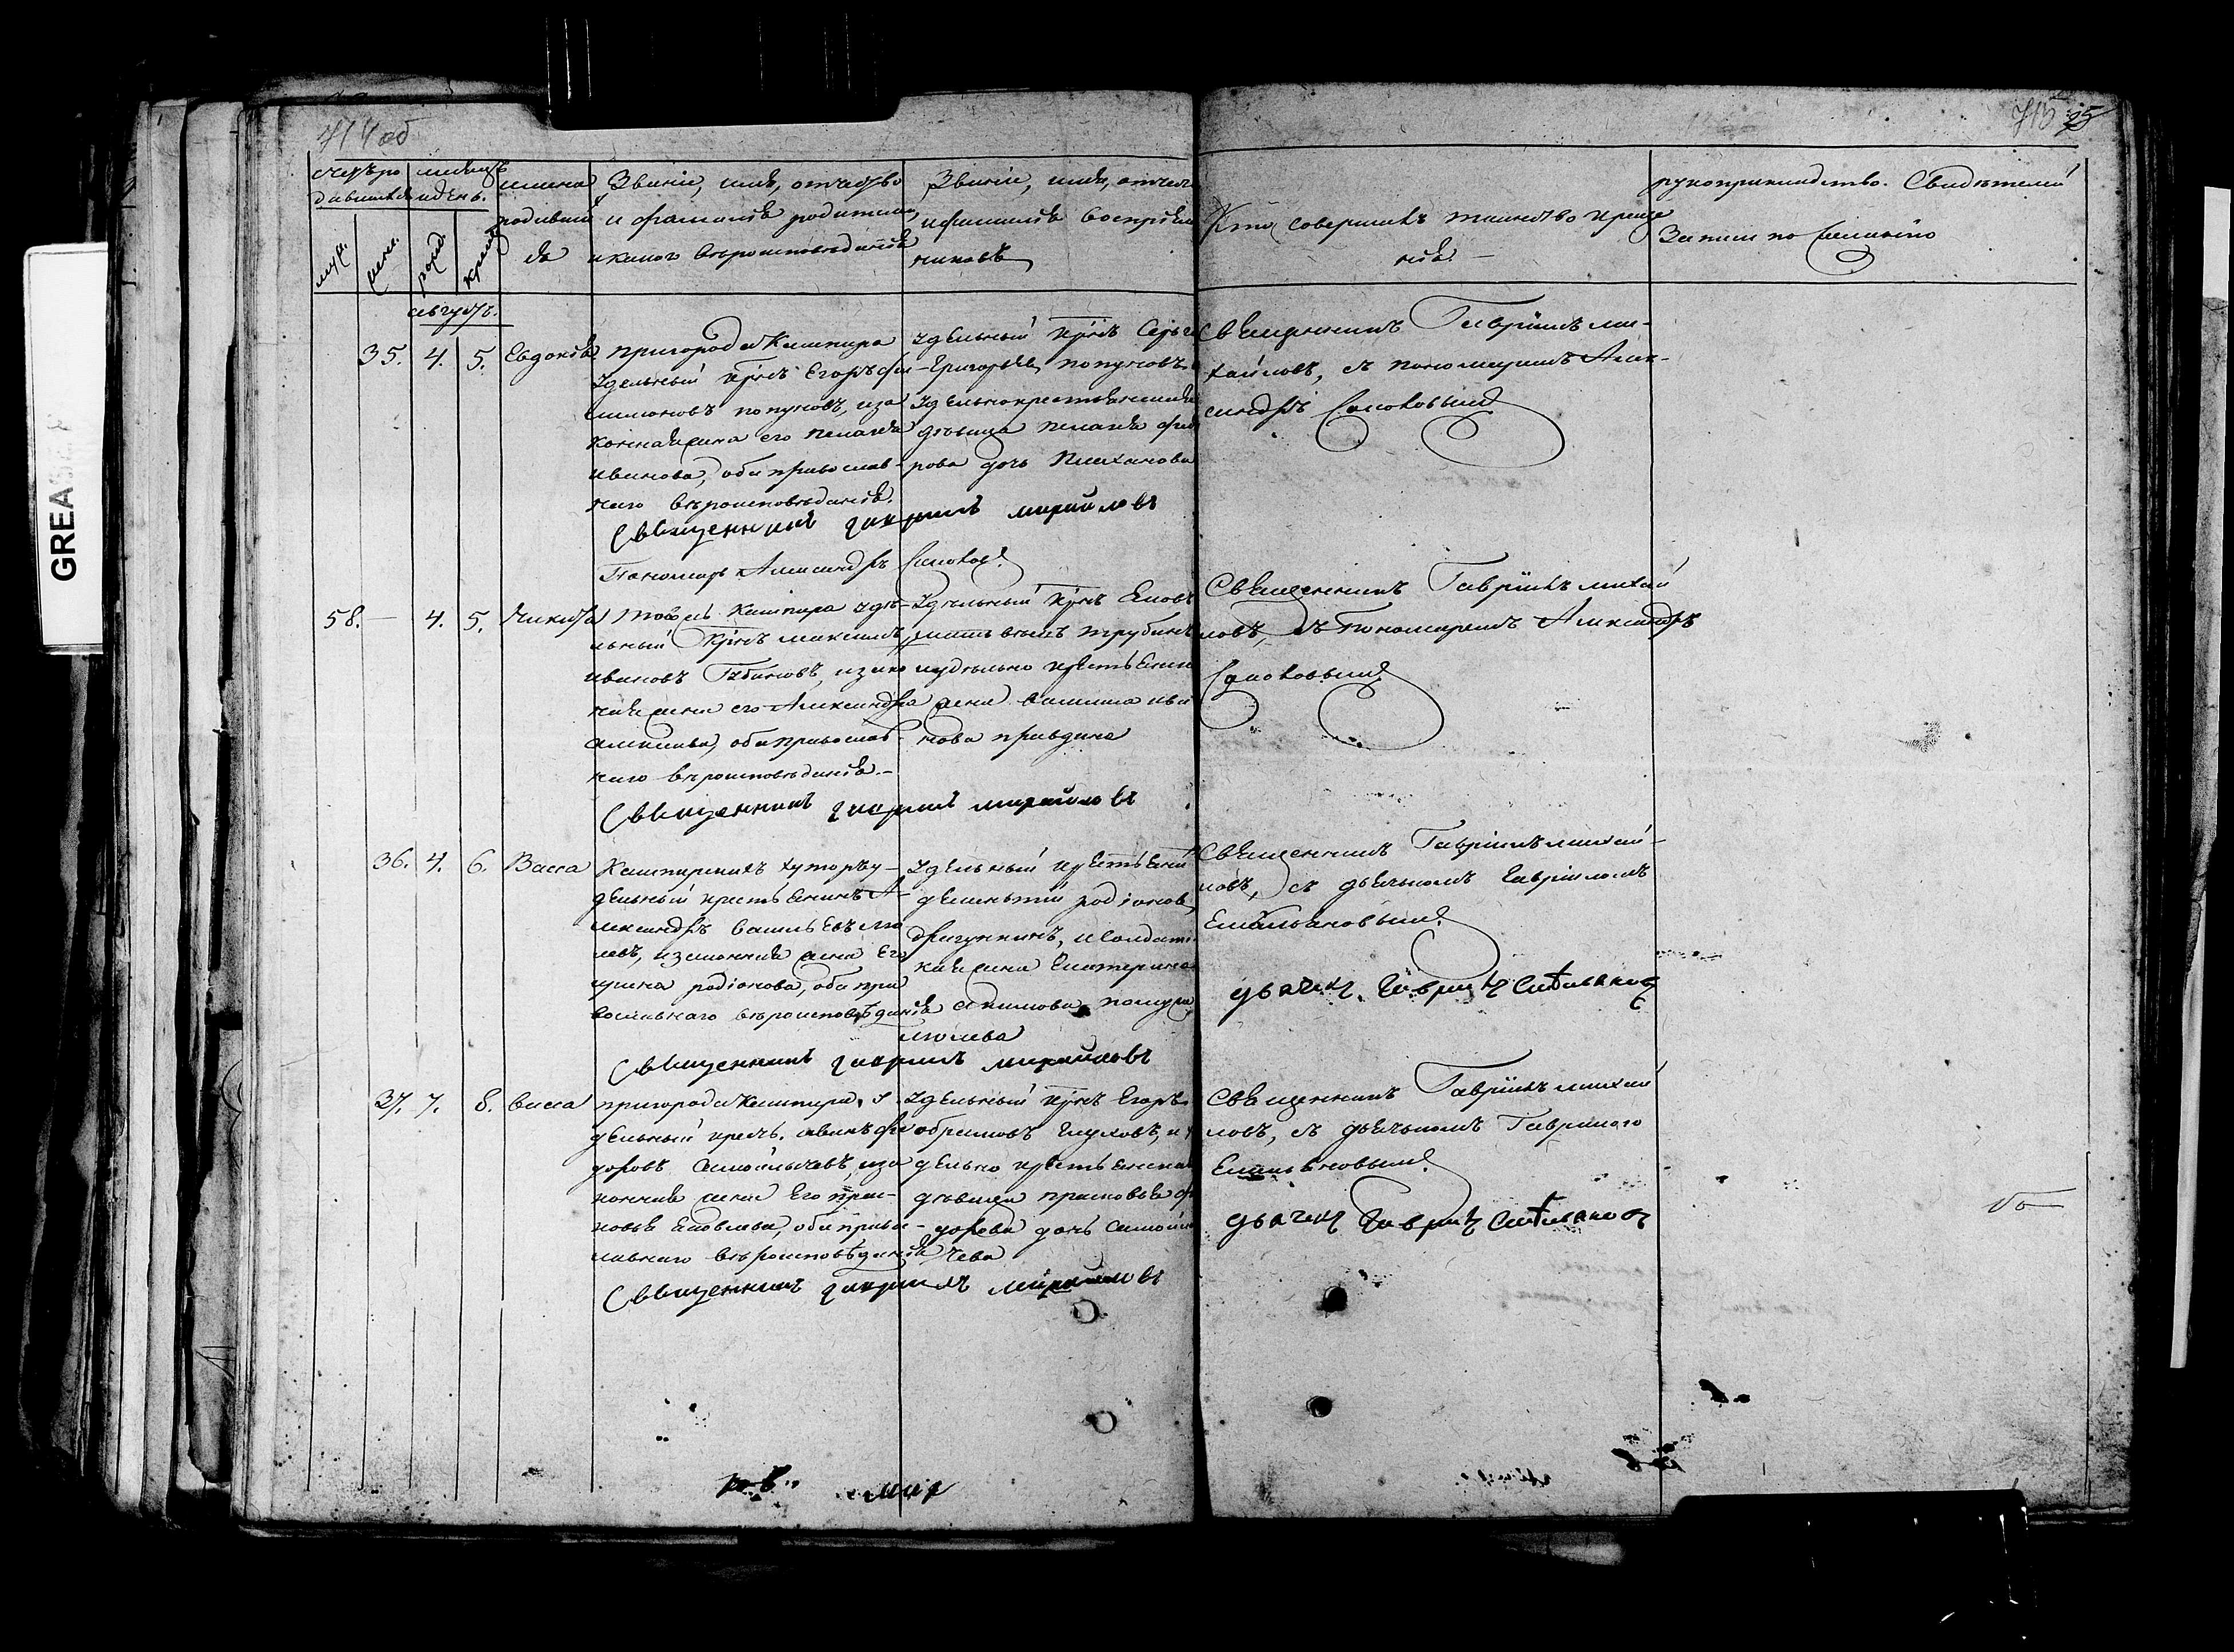 714 об
715 25
GREA
счетъ ро
дившихся
мѣсяцъ
и день.
муж.
жен.
рожд.
крещ.
имена
родивших
ся
Званіе, имя, отчество
и фамилія родителей,
и какого вѣроисповѣданія
Званіе, имя, отчест
и фамилія воспріем
никовъ
Кто совершилъ таинство креще
нія. —
рукоприкладство. Свидѣтелей
Записи по желанію
августъ.
35. 4. 5. Евдокія
пригорода Кашпира
Удельный кр-нъ Егоръ фи-
липповъ попуновъ, и за
конная жена его пелагея
иванова, оба православ-
наго вѣроисповѣданія.
Священникъ гавриилъ михайловъ
Пономарь Александръ Соколов
Удельный кр-нъ Серге
Григорьевъ попуновъ
Удельнокрестьянская
дѣвица пелагея фед
рова дочь Плеханова
Священникъ Гавріилъ ми-
хайловъ, съ пономаремъ Алек-
сандръ Соколовымъ
58. — 4. 5. Никита
Тогожъ Кашпира удѣ-
льный кр-нъ максимъ
ивановъ Губановъ, и зако
ная жена его Александра
алексеева, оба православ-
наго вѣроисповѣданія. —
Священникъ гавриилъ михайловъ
Удельный кр-нъ Яковъ
матвѣевъ трубинъ
и удельно крестьянск
жена василиса ива
нова правдина
Священникъ Гавріилъ михай
ловъ, съ Пономаремъ Александръ
Соколовымъ
36. 4. 6. Васса
Кашпирскихъ хуторъ у-
дельный крестьянинъ А-
лександръ васильевъ
левъ, и законная жена Его
ирина родіонова, оба пра
вославнаго вѣроисповѣданія
Священникъ гавриилъ михайловъ
Удельный крестьянин
дементій родіонов
драгункинъ, и солдатс
кая жена Екатерина
Акимова
Священникъ Гавріилъ михай-
ловъ, съ дьячькомъ Гавріиломъ
Емельяновымъ
дьячек Гавриил Емельянов
37. 7. 8. васса
пригорода Кашпира, у
дельный крест. иванъ фе
доровъ Самойлычевъ, и за
конная жена Его прас-
ковья Яковлева, оба право-
славнаго вѣроисповѣданія
Священникъ гавриилъ михайловъ
Удельный кр-нъ Егоръ
абрамовъ Глуховъ, и у
дельно крестьянская
дѣвица прасковья фе
дорова дочь Самойлы
чева
Священникъ Гавріилъ михай
ловъ, съ дьячькомъ Гавриломъ
Емельяновымъ
дьячек Гавриил Емельянов